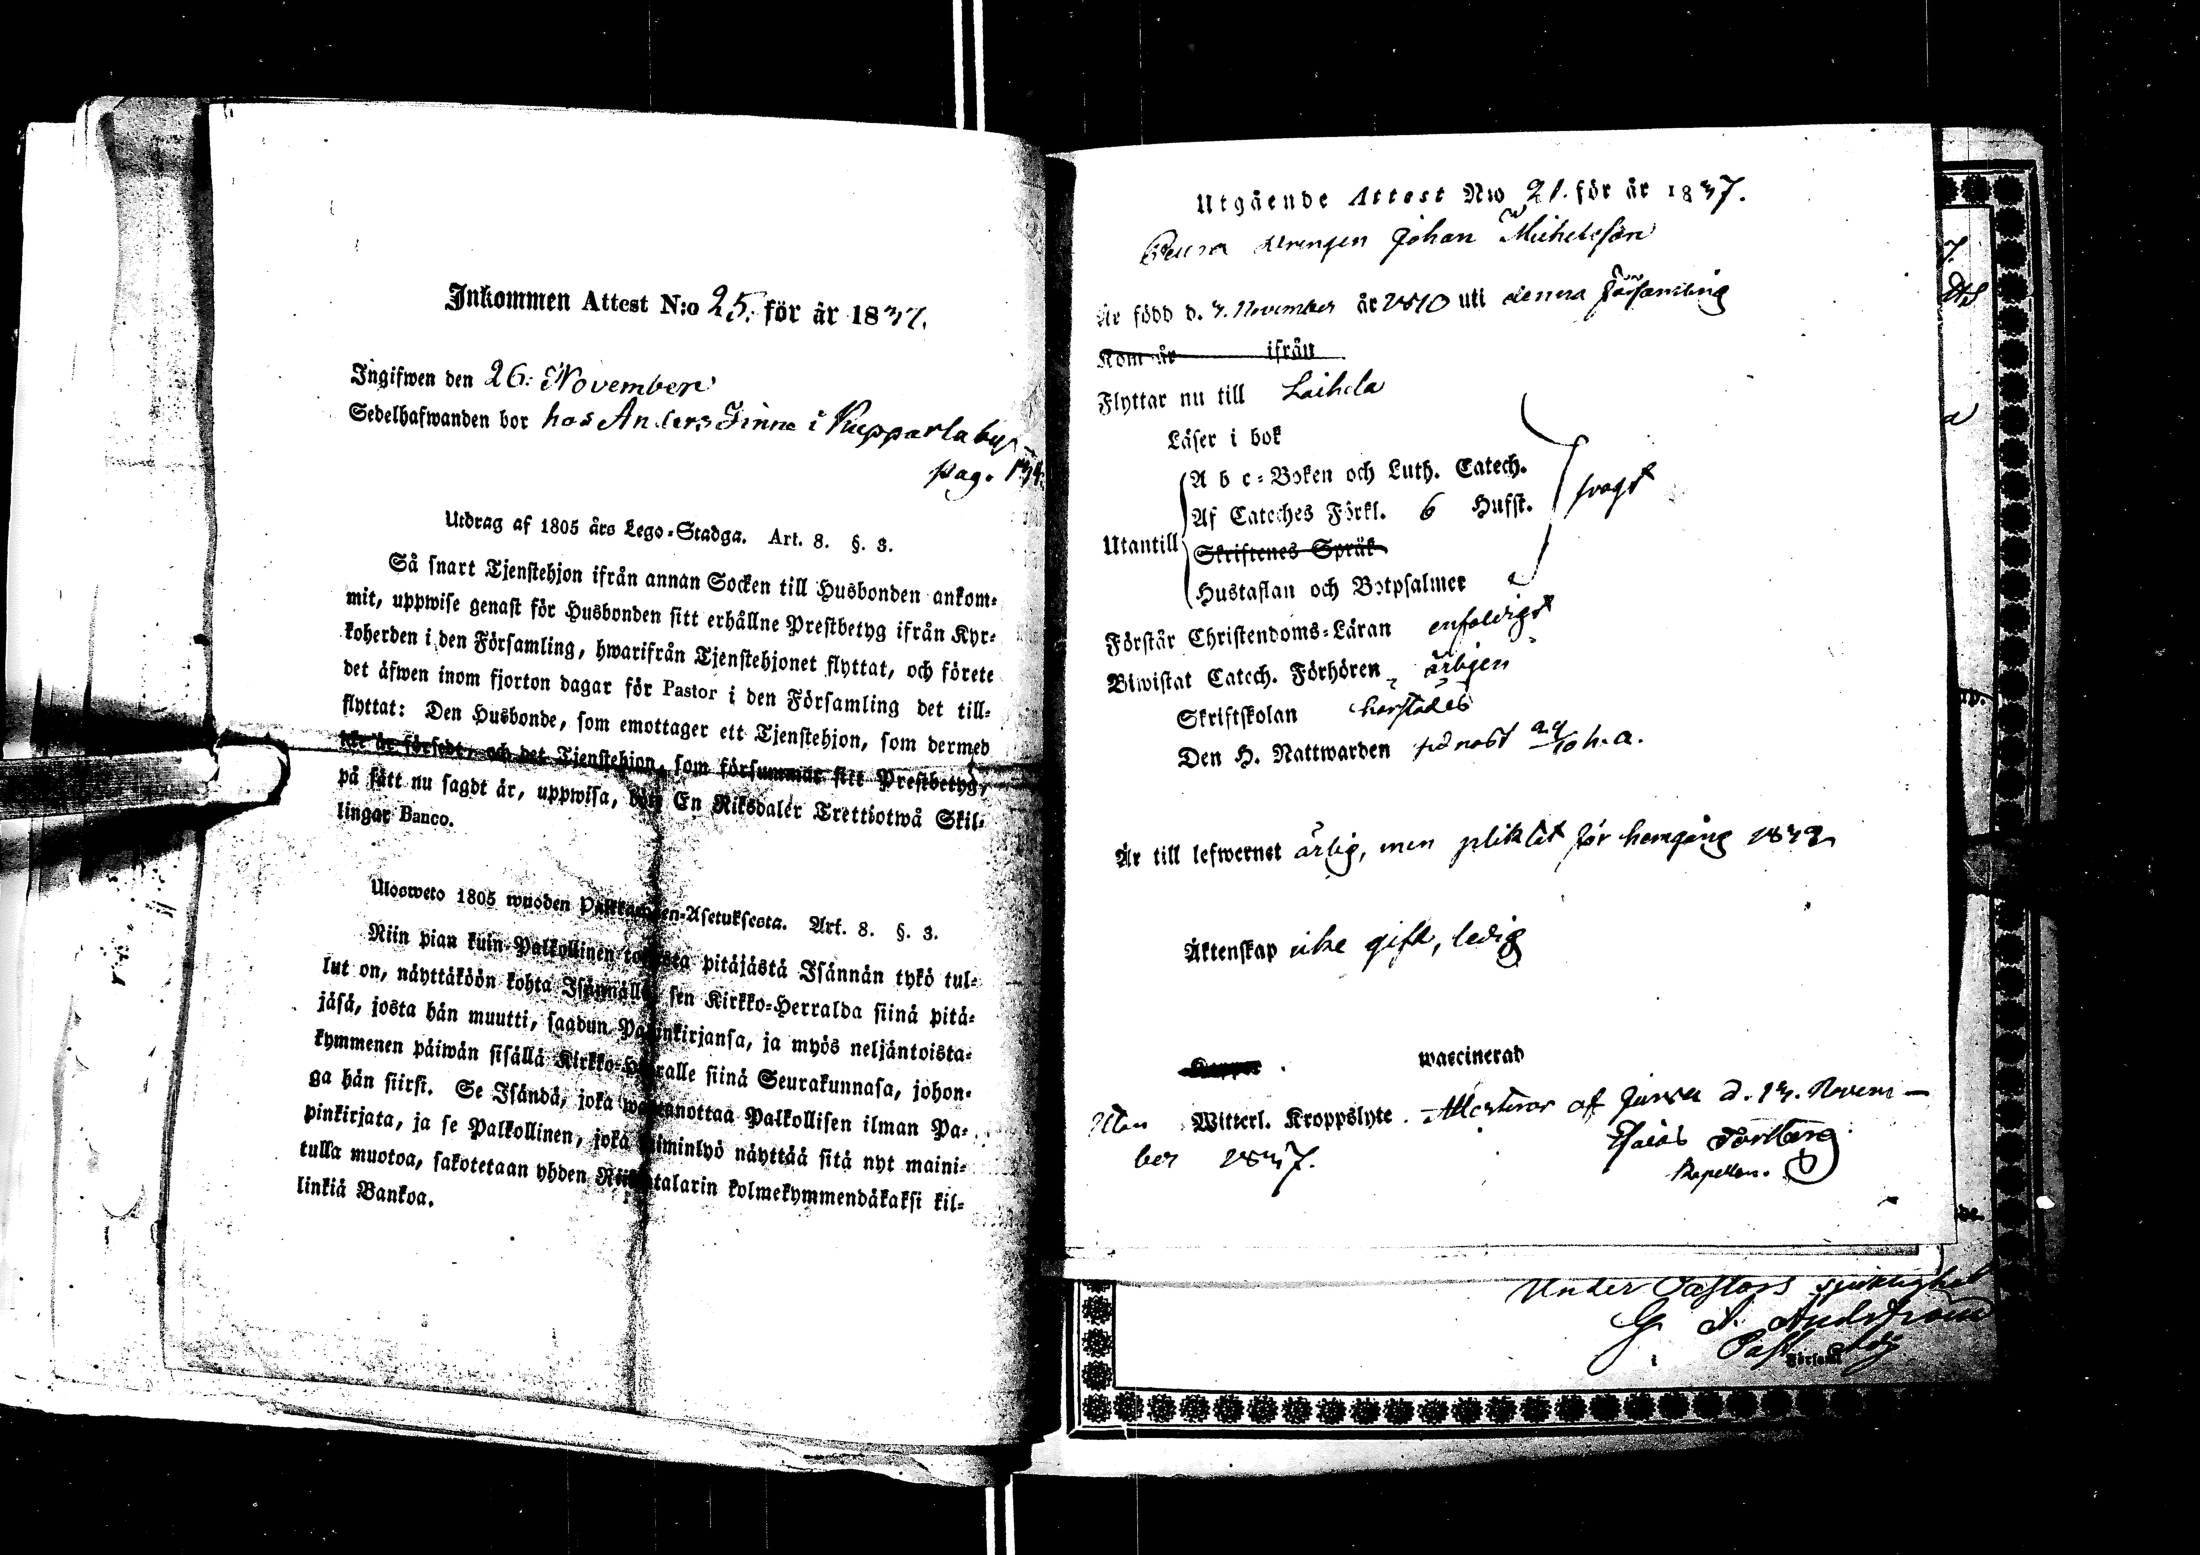 Inkommen Attest N:o 25. för år 1837.
Ingifwen den 26. November
Sedelhafwanden bor hos Anders Finne i Kupparla by
pag.
Utdrag af 1805 års Lego-Stadga. Art. 8. §. 3.
Så snart Tjenstehjon ifrån annan Socken till Husbonden ankom-
mit, uppwise genast för Husbonden sitt erhållne Prestbetyg ifrån Kyr-
koherden i den Församling, hwarifrån Tjenstehjonet flyttat, och förete
det äfwen inom fjorton dagar för Pastor i den Församling det till-
flyttat: Den Husbonde, som emottager ett Tjenstehjon, som dermed
icke är försedt, och det Tjenstehjon, som försummar sitt Prestbetyg,
på sätt nu sagdt är, uppwisa, böte En Riksdaler Trettiotwå Skil-
lingar Banco.
Ulosweto 1805 wuoden Palkkawäen-Asetuksesta. Art. 8. §. 3.
Niin pian kuin Palkollinen toisesta pitäjästä Isännän tykö tul-
lut on, näyttäköön kohta Isännälle, sen Kirkko-Herralda siinä pitä-
jäsä, josta hän muutti, saadun Papinkirjansa, ja myös neljäntoista-
kymmenen päiwän sisällä Kirkko-Herralle siinä Seurakunnasa, johon-
ga hän siirsi. Se Isändä, joka wastaanottaa Palkollisen ilman Pa-
pinkirjata, ja se Palkollinen, joka laiminlyö näyttää sitä nyt maini-
tulla muotoa, sakotetaan yhden Riikintalarin kolmekymmendäkaksi kil-
linkiä Bankoa.
Utgående Attest N:o 21. för år 1837.
drengen Johan Michelsson
Är född d. 3. November år 1810 uti denna församling
Kom år ifrån
Flyttar nu till Laihela
Läser i bok
A b c-Boken och Luth. Catech.
Af Cateches Förkl. 6 Hufst.
Utantill
Skriftenes Språk
Hustaflan och Botpsalmer
svagt
Förstår Christendoms-Läran enfaldigt
Biwistat Catech. Förhören årligen
Skriftskolan härstädes
Den H. Nattwarden sidnast h. a.
Är till lefwernet ärlig, men pliktat för
Äktenskap icke gift, ledig
Koppor waccinerad
Utan Witterl. Kroppslyte. Attesteras af Jurva d. 13. Novem-
ber 1837. Esaias
Kapellan.
Under Pastors
G. A.
i Församl